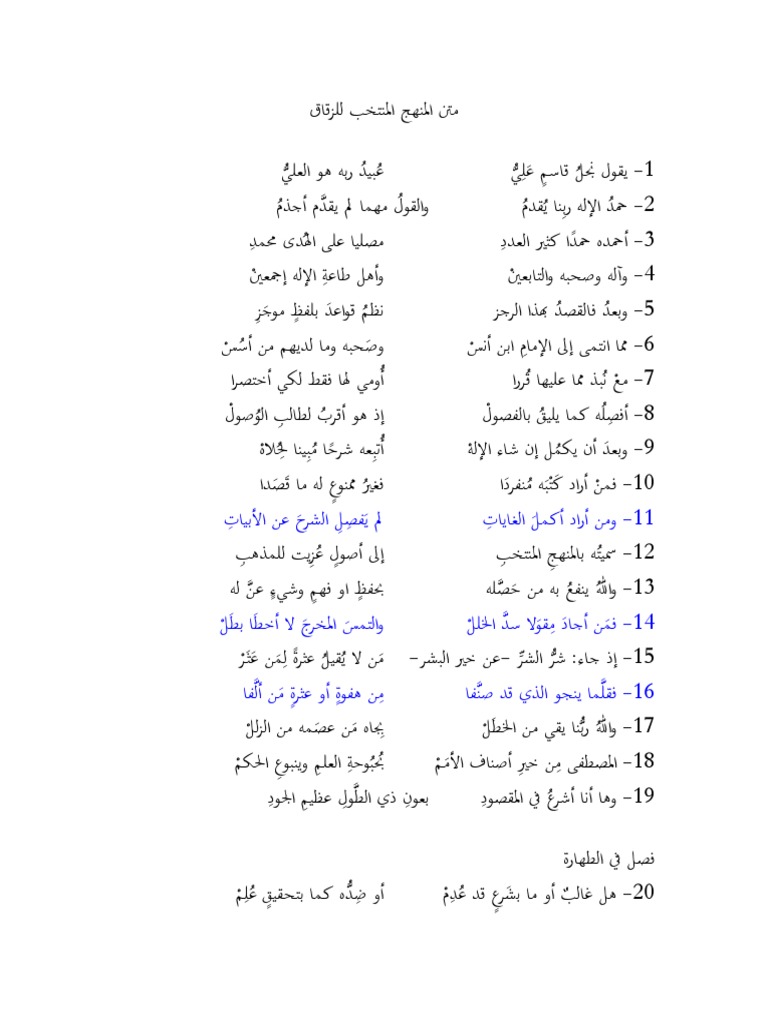 متن المنهج المنتخب للزقاق
1- يقول نجلُ قاسمٍ عَلِيُّ عُبيدُ ربه هو العليُّ
2- حمدُ الإله ربِنا يُقدمُ والقولُ مهما لم يقدَّم أجذمُ
3- أحمده حمدًا كثير العددِ مصليا على الهُدى محمدِ
4- وآله وصحبه والتابعينْ وأهل طاعةِ الإله إجمعينْ
5- وبعدُ فالقصدُ بهذا الرجز نظمُ قواعدَ بلفظٍ موجَزِ
6- مما انتمى إلى الإمامِ ابن أنسْ وصَحبه وما لديهم من أسُسْ
7- معْ نُبذ مما عليها قُررا أُومي لها فقط لكي أختصرا
8- أفصِلُه كما يليقُ بالفصولْ إذ هو أقربُ لطالبِ الوُصولْ
9- وبعدَ أن يكمُل إن شاء الإلهْ أُتبِعه شرحًا مُبِينا لحُِلاهْ
10- فمنْ أراد كَتْبَه مُنفردَا فغيرُ ممنوعٍ له ما قَصَدا
11- ومن أراد أكملَ الغاياتِ لم يَفصِلِ الشرحَ عن الأبياتِ
12- سميتُه بالمنهجِ المنتخبِ إلى أصولٍ عُزِيت للمذهبِ
13- واللهُ ينفعُ به من حَصَّله بحفظٍ او فهمٍ وشيءٍ عنَّ له
14- فمَن أجادَ مِقوَلا سدَّ الخللْ والتمسَ المخرجَ لا أخطَا بطَلْ
15- إذ جاء: شرُّ الشرِّ -عن خير البشر- مَن لا يُقيلُ عثرةً لِمَن عَثَرْ
16- فقلَّما ينجو الذي قد صنَّفا مِن هفوةٍ أو عثرةٍ مَن ألَّفا
17- واللهُ ربُّنا يقي من الخطَلْ بِجاه مَن عصَمه من الزللْ
18- المصطفى مِن خيرِ أصناف الأمَمْ بُحبُوحةِ العلمِ وينبوعِ الحكمْ
19- وها أنا أشرعُ في المقصودِ بعونِ ذي الطَّولِ عظيمِ الجودِ
فصل في الطهارة
20- هل غالبٌ أو ما بشَرعٍ قد عُدِمْ أو ضِدُّه كما بتحقيقٍ عُلِمْ